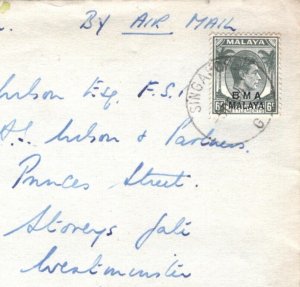 BY AIR MAIL
MALAYA
BMA
MALAYA
6c 6c
SINGA
G
Wilson Esq. F.S.I
Wilson & Partners,
Princes Street.
Storeys Gate
Westminster